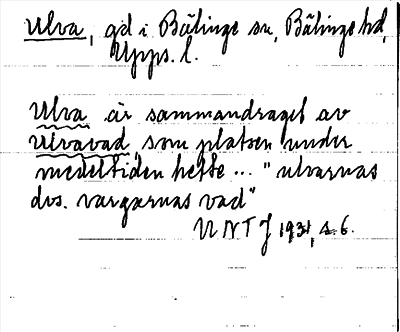 Ulva, gd i Bälinge sn, Bälinge hd,
Upps. l.
Ulva är sammandraget av
Ulvavad, som platsen under
medeltiden hette ... "ulvarnas
dvs. vargarnas vad"
UNTJ 1931, s. 6.